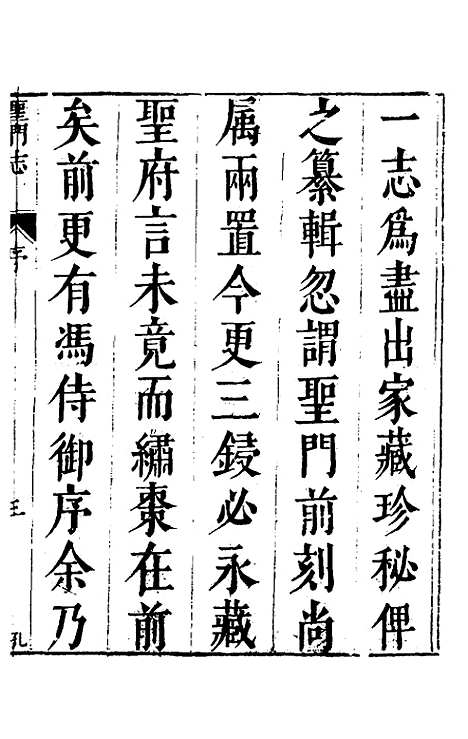 一志爲盡出家藏珍秘俾
之纂輯忽謂聖門前刻尚
属兩置今更三鋟必永藏
聖府言未竟而繡棗在前
矣前更有馮侍御序余乃
聖門志 序 王 孔